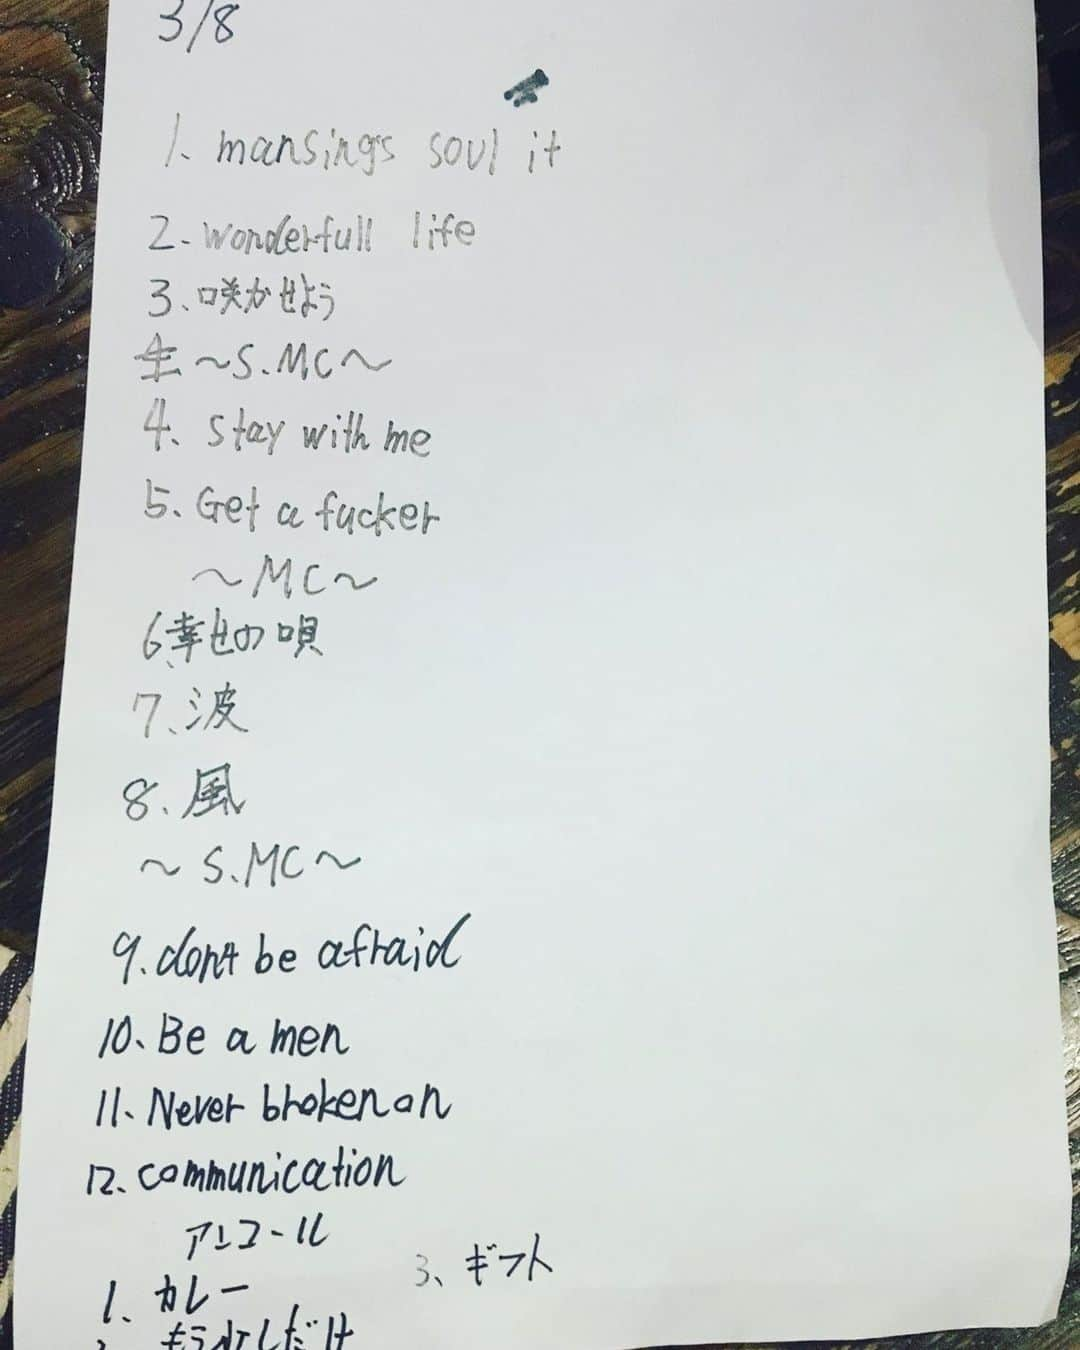 3/8
1、mansing's soul it
2、wonderfull life
3、咲かせよう
〜S.MC〜
4、stay with me
5、Get a fucker
〜MC〜
6、幸せの唄
7、波
8、風
〜S.MC〜
9、don't be afraid
10、Be a men
11、Never broken on
12、communication
アンコール
1、カレー
3、ギフト
もう少しだけ